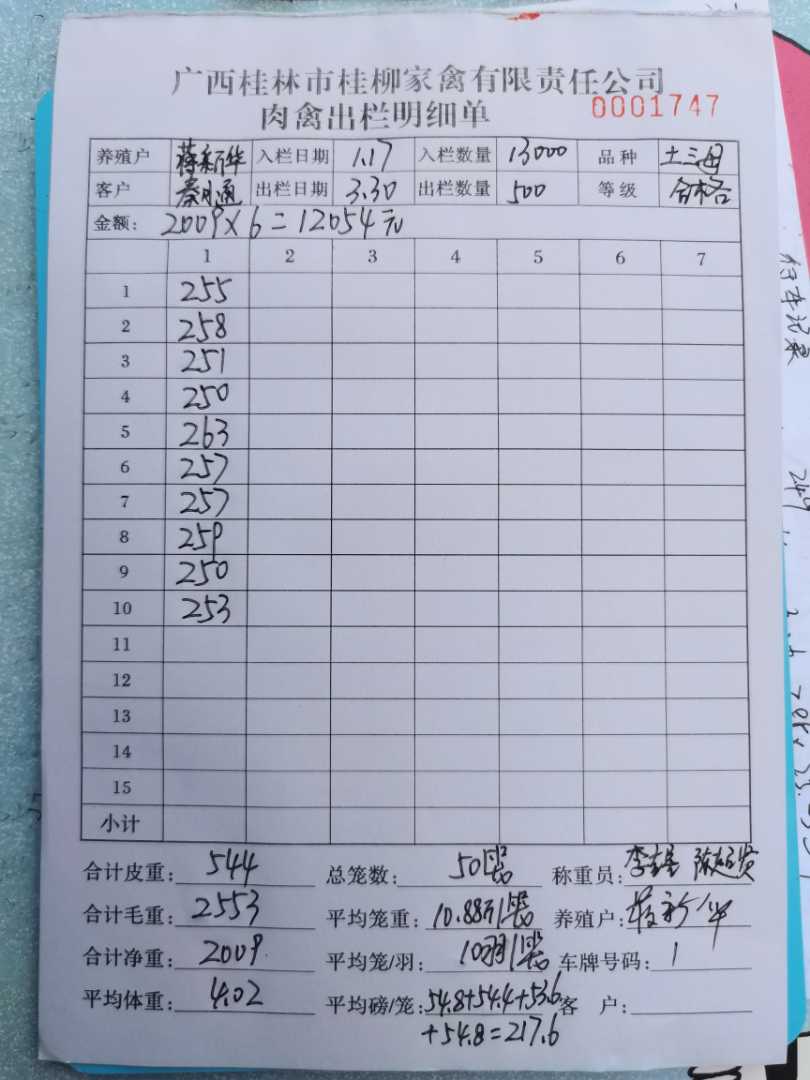 广西桂林市桂柳家禽有限责任公司
肉禽出栏明细单 0001747
养殖户 蒋新华 入栏日期 1.17 入栏数量 13000 品种 土三母
客户 秦小通 出栏日期 3.30 出栏数量 500 等级 合格
金额: 2009×6=12054元
1 2 3 4 5 6 7
1 255
2 258
3 251
4 250
5 263
6 257
7 257
8 259
9 250
10 253
11
12
13
14
15
小计
合计皮重: 544 总笼数: 50笼 称重员:
合计毛重: 2553 平均笼重: 10.88斤/笼 养殖户: 蒋新华
合计净重: 2009. 平均笼/羽: 10羽/笼 车牌号码: 1
平均体重: 4.02 平均磅/笼: 54.8+54.4+53.6 客 户:
+54.8=217.6
行车记录
249